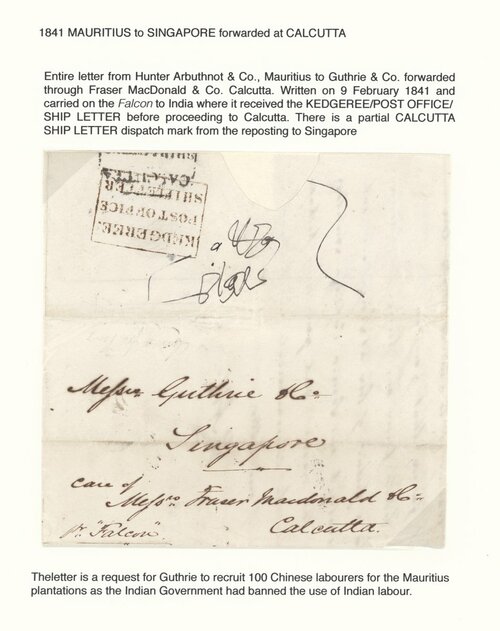 1841 MAURITIUS to SINGAPORE forwarded at CALCUTTA
Entire letter from Hunter Arbuthnot & Co., Mauritius to Guthrie & Co. forwarded
through Fraser MacDonald & Co. Calcutta. Written on 9 February 1841 and
carried on the Falcon to India where it received the KEDGEREE/POST OFFICE/
SHIP LETTER before proceeding to Calcutta. There is a partial CALCUTTA
SHIP LETTER dispatch mark from the reposting to Singapore
SHIP LETTER
CALCUTTA
SHIP LETTER
POST OFFICE
KEDGEREE
Messrs Guthrie & Co
Singapore
Care of
Messrs Fraser Macdonald & Co
Calcutta.
pr. "Falcon"
Theletter is a request for Guthrie to recruit 100 Chinese labourers for the Mauritius
plantations as the Indian Government had banned the use of Indian labour.